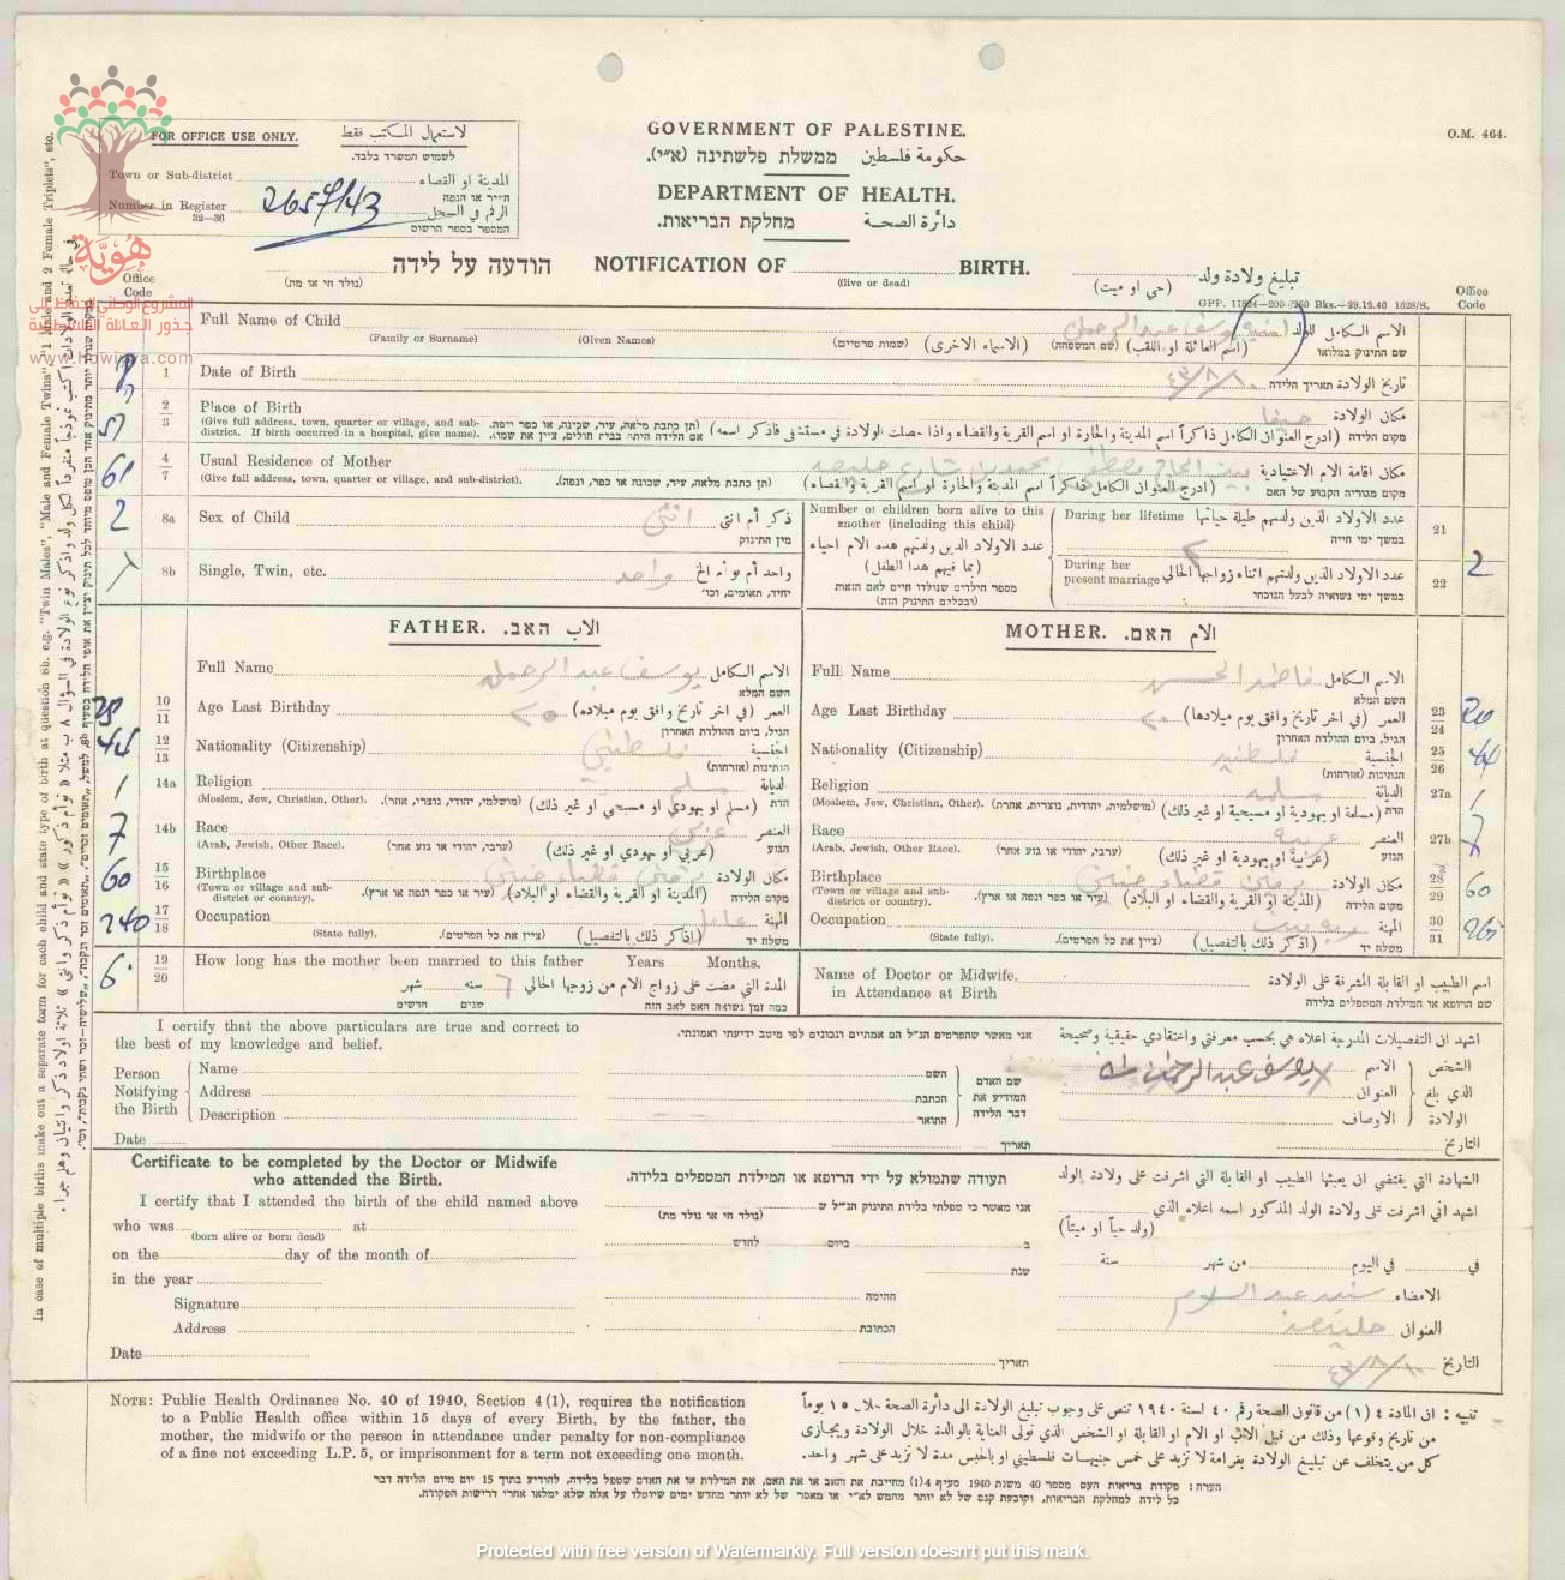 FOR OFFICE USE ONLY. لاستعمال المكتب فقط
לשמוש המשרד בלבד.
Town or Sub-district المدينة او القضاء
העיר או הנפה
Number in Register 2657/43 الرقم في السجل
32—36 המספר בספר הרשום
GOVERNMENT OF PALESTINE.
حكومة فلسطين ממשלת פלשתינה (א"י).
DEPARTMENT OF HEALTH.
دائرة الصحة מחלקת הבריאות.
O.M. 464.
هُوِيَّة
المشروع الوطني للحفاظ على
جذور العائلة الفلسطينية
www.howiyya.com
הודעה על לידה NOTIFICATION OF BIRTH. تبليغ ولادة ولد
(נולד חי או מת) (live or dead) (حي او ميت)
Office Code
GPP. 11884—200-/250 Bks.—29.12.40 1628/S.
Office Code
Full Name of Child يوسف عبد الرحمن الاسم الكامل للولد
שם התינוק במלואו
(Family or Surname) (Given Names) (שמות פרטיים) (الاسماء الاخرى) (שם המשפחה) (اسم العائلة او اللقب)
1 Date of Birth ٤٣/٨/١٠ تاريخ الولادة תאריך הלידה
2 3 Place of Birth حيفا مكان الولادة
(Give full address, town, quarter or village, and sub-district. If birth occurred in a hospital, give name). (תן כתבת מלאה, עיר, שכונה, או כפר ונפה. אם הלידה היתה בבית חולים, ציין את שמו). (ادرج العنوان الكامل ذاكراً اسم المدينة والحارة او اسم القرية والقضاء واذا حصلت الولادة في مستشفى فاذكر اسمه) מקום הלידה
61 4 7 Usual Residence of Mother بيت الحاج مصطفى محمد شارع مكان اقامة الام الاعتيادية
(Give full address, town, quarter or village, and sub-district). (תן כתבת מלאה, עיר, שכונה או כפר, ונפה). (ادرج العنوان الكامل ذاكراً اسم المدينة والحارة او اسم القرية والقضاء) מקום מגוריה הקבוע של האם
2 8a Sex of Child انثى ذكر أم انثى
מין התינוק
8b Single, Twin, etc. واحد واحد أم توأم الخ
יחיד, תאומים, וכו'
Number of children born alive to this mother (including this child)
عدد الاولاد الذين ولدتهم هذه الام احياء
(بما فيهم هذا الطفل)
מספר הילדים שנולדו חיים לאם הזאת
(ובכללם התינוק הזה)
During her lifetime عدد الاولاد الذين ولدتهم طيلة حياتها 21
במשך ימי חייה
٢
During her present marriage عدد الاولاد الذين ولدتهم اثناء زواجها الحالي 22 2
במשך ימי נשואיה לבעל הנוכחי
FATHER. האב. الاب
Full Name يوسف عبد الرحمن الاسم الكامل
השם המלא
10 11 Age Last Birthday ٢٥ العمر (في اخر تاريخ وافق يوم ميلاده)
הגיל, ביום ההולדת האחרון
44 12 13 Nationality (Citizenship) فلسطيني الجنسية
הנתינות (אזרחות)
1 14a Religion مسلم الديانة
(Moslem, Jew, Christian, Other). (מושלמי, יהודי, נוצרי, אחר). (مسلم او يهودي او مسيحي او غير ذلك) הדת
7 14b Race عربي العنصر
(Arab, Jewish, Other Race). (ערבי, יהודי או גזע אחר) (عربي او يهودي او غير ذلك) הגזע
60 15 16 Birthplace برقين قضاء جنين مكان الولادة
(Town or village and sub-district or country). (עיר או כפר ונפה או ארץ). (المدينة او القرية والقضاء او البلاد) מקום הלידה
240 17 18 Occupation عامل المهنة
(State fully). (ציין את כל הפרטים). (اذكر ذلك بالتفصيل) משלח יד
6 19 20 How long has the mother been married to this father Years Months.
المدة التي مضت على زواج الام من زوجها الحالي ٦ سنه شهر
כמה זמן נשואה האם לאב הזה שנים חדשים
MOTHER. האם. الام
Full Name فاطمه الحسن الاسم الكامل
השם המלא
Age Last Birthday ٢٠ العمر (في اخر تاريخ وافق يوم ميلادها) 23 24 20
הגיל, ביום ההולדת האחרון
Nationality (Citizenship) فلسطينيه الجنسية 25 26 44
הנתינות (אזרחות)
Religion مسلمه الديانة 27a 1
(Moslem, Jew, Christian, Other). (מושלמית, יהודית, נוצרית, אחרת) (مسلمة او يهودية او مسيحية او غير ذلك) הדת
Race عربيه العنصر 27b 7
(Arab, Jewish, Other Race). (ערבי, יהודי או גזע אחר) (عربية او يهودية او غير ذلك) הגזע
Birthplace برقين قضاء جنين مكان الولادة 28 29 60
(Town or village and sub-district or country). (עיר או כפר ונפה או ארץ). (المدينة او القرية والقضاء او البلاد) מקום הלידה
Occupation ربة بيت المهنة 30 31
(State fully). (ציין את כל הפרטים). (اذكر ذلك بالتفصيل) משלח יד
Name of Doctor or Midwife, اسم الطبيب او القابلة المشرفة على الولادة
in Attendance at Birth שם הרופא או המילדת המטפלים בלידה
I certify that the above particulars are true and correct to the best of my knowledge and belief.
אני מאשר שהפרטים הנ"ל הם אמתיים ונכונים לפי מיטב ידיעתי ואמונתי.
اشهد ان التفصيلات المدرجة اعلاه هي بحسب معرفتي واعتقادي حقيقية وصحيحة
Person Notifying the Birth
Name השם يوسف عبد الرحمن الاسم
Address הכתבת العنوان
Description התואר الاوصاف
שם האדם המודיע את דבר הלידה
الشخص الذي بلغ الولادة
Date תאריך التاريخ
Certificate to be completed by the Doctor or Midwife
who attended the Birth.
I certify that I attended the birth of the child named above
who was at
(born alive or born dead)
on the day of the month of
in the year
Signature
Address
Date
תעודה שתמולא על ידי הרופא או המילדת המטפלים בלידה.
אני מאשר כי טפלתי בלידת התינוק הנ"ל ש
(נולד חי או נולד מת)
ב ביום לחדש
שנת
החתימה
הכתובת
תאריך
الشهادة التي يقتضي ان يعبئها الطبيب او القابلة التي اشرفت على ولادة الولد
اشهد اني اشرفت على ولادة الولد المذكور اسمه اعلاه الذي
(ولد حياً او ميتاً)
في في اليوم من شهر سنة
الامضاء عبد السلام
العنوان
التاريخ ٤٣/٨/١٠
NOTE: Public Health Ordinance No. 40 of 1940, Section 4(1), requires the notification
to a Public Health office within 15 days of every Birth, by the father, the
mother, the midwife or the person in attendance under penalty for non-compliance
of a fine not exceeding L.P. 5, or imprisonment for a term not exceeding one month.
تنبيه : ان المادة ٤ (١) من قانون الصحة رقم ٤٠ لسنة ١٩٤٠ تنص على وجوب تبليغ الولادة الى دائرة الصحة خلال ١٥ يوماً
من تاريخ وقوعها وذلك من قبل الاب او الام او القابلة او الشخص الذي تولى العناية بالوالدة خلال الولادة ويجازى
كل من يتخلف عن تبليغ الولادة بغرامة لا تزيد على خمس جنيهات فلسطيني او بالحبس مدة لا تزيد على شهر واحد.
הערה: פקודת בריאות העם מספר 40 משנת 1940 סעיף 4(1) מחייבת את האב או את האם, את המילדת או את האדם שטפל בלידה, להודיע בתוך 15 יום מיום הלידה דבר
כל לידה למחלקת הבריאות, וקובעת קנס של לא יותר מחמש לא"י או מאסר של לא יותר מחדש ימים שיוטלו על אלה שלא ימלאו אחרי דרישות הפקודה.
In case of multiple births make out a separate form for each child and state type of birth at question 8b. e.g. "Twin Males", "Male and Female Twins", "1 Male and 2 Female Triplets", etc.
Protected with free version of Watermarkly. Full version doesn't put this mark.